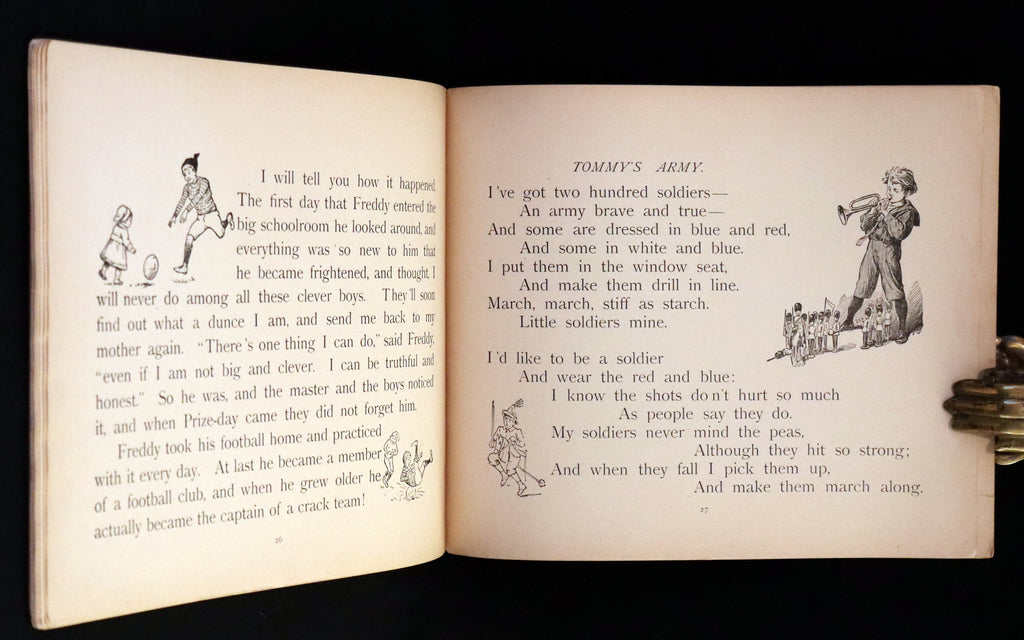 I will tell you how it happened.
The first day that Freddy entered the
big schoolroom he looked around, and
everything was so new to him that
he became frightened, and thought, I
will never do among all these clever boys. They'll soon
find out what a dunce I am, and send me back to my
mother again. "There's one thing I can do," said Freddy,
"even if I am not big and clever. I can be truthful and
honest." So he was, and the master and the boys noticed
it, and when Prize-day came they did not forget him.
Freddy took his football home and practiced
with it every day. At last he became a member
of a football club, and when he grew older he
actually became the captain of a crack team!
26
TOMMY'S ARMY.
I've got two hundred soldiers—
An army brave and true—
And some are dressed in blue and red,
And some in white and blue.
I put them in the window seat,
And make them drill in line.
March, march, stiff as starch.
Little soldiers mine.
I'd like to be a soldier
And wear the red and blue:
I know the shots don't hurt so much
As people say they do.
My soldiers never mind the peas,
Although they hit so strong;
And when they fall I pick them up,
And make them march along.
27